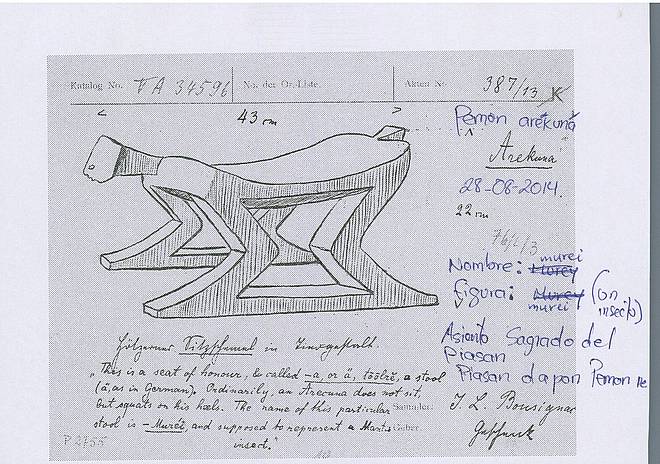 Katalog No. V A 34596 No. der Or.-Liste. Akten No 387/13 K
43 cm
Pemon arekuna
Arekuna
28-08-2014.
22 cm
Nombre: murei
Murey
Figura: Murey (Un
murei insecto)
Asiento Sagrado del
Piasan
Piasan dapon Pemon
Hölzerner Sitzschemel in Tiergestalt.
"This is a seat of honour, & called -a, or ä, töölré, a stool
(ä, as in German). Ordinarily, an Arecuna does not sit,
but squats on his heels. The name of this particular
stool is -Muréi, and supposed to represent a Mantis
insect."
Sammler:
Geber.
J. L. Bonsignac
Geschenk
P 2755